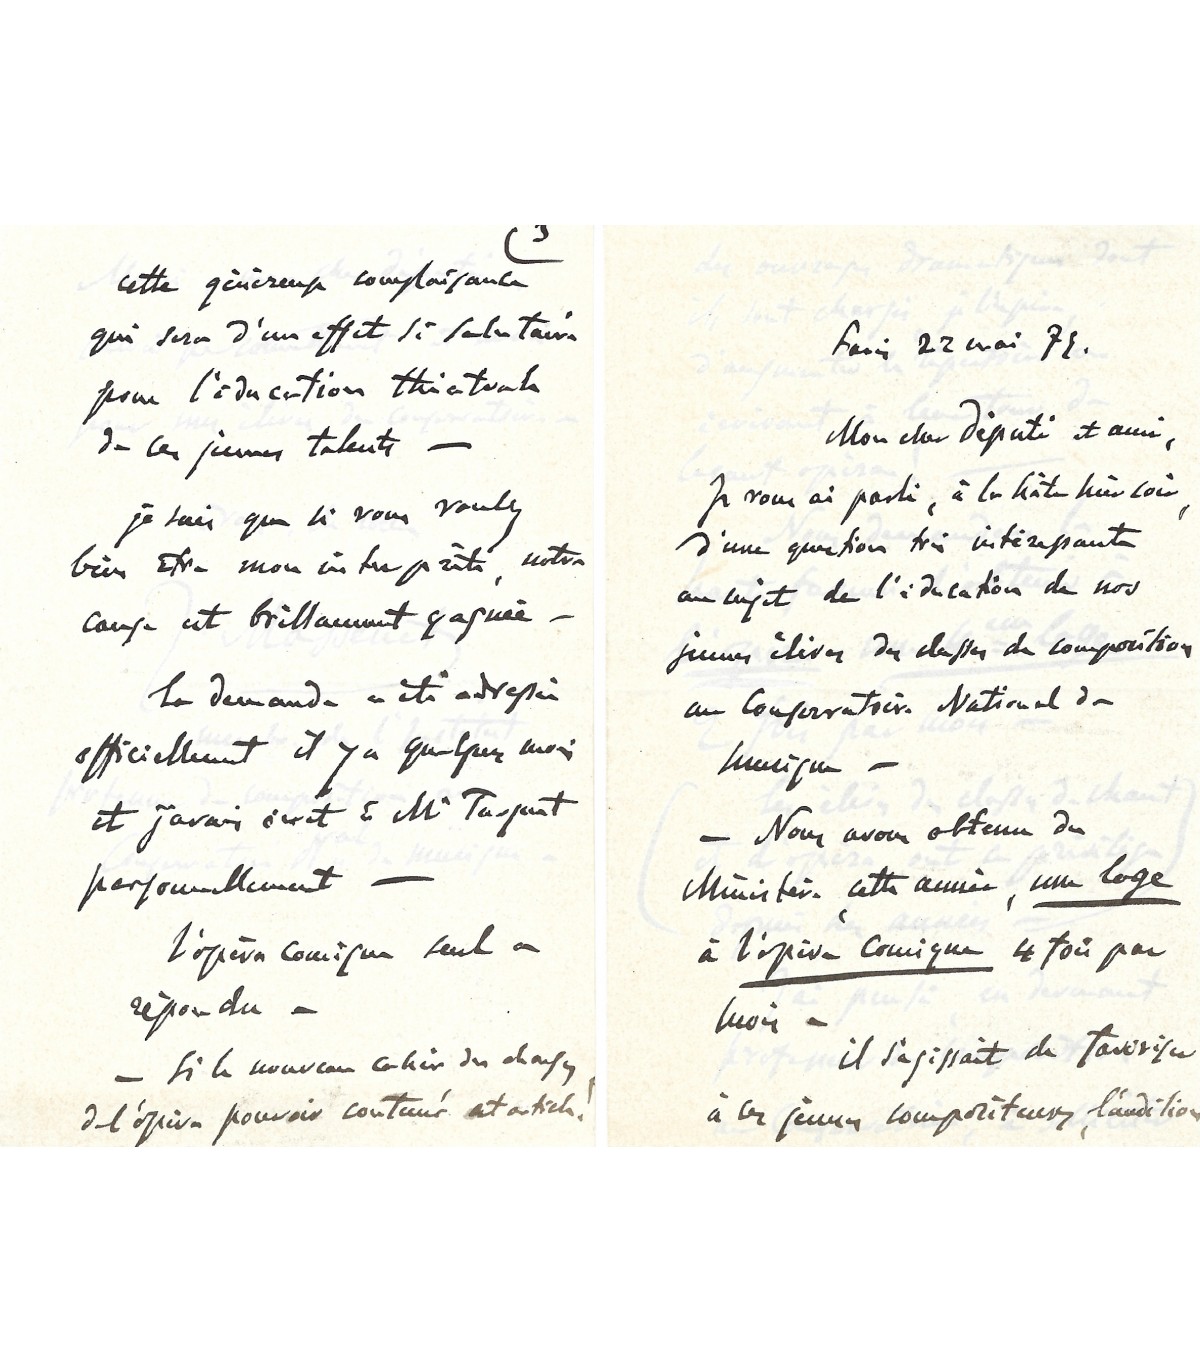 (3
cette généreuse complaisance
qui sera d'un effet si salutaire
pour l'éducation théâtrale
de ces jeunes talents —
je sais que si vous voulez
bien être mon interprète, notre
cause est brillamment gagnée —
La demande a été adressée
officiellement il y a quelques mois
et j'avais écrit à Mr Turquet
personnellement —
l'opéra comique seul a
répondu —
— Si le nouveau cahier des charges
de l'opéra pouvait contenir cet article!
Paris 22 mai 79.
Mon cher député et ami,
Je vous ai parlé, à la hâte hier soir,
d'une question très intéressante
au sujet de l'éducation de nos
jeunes élèves des classes de composition
au Conservatoire National de
musique —
— Nous avons obtenu du
Ministère, cette année, une loge
à l'opéra Comique 4 fois par
mois —
il s'agissait de favoriser
à ces jeunes compositeurs, l'audition